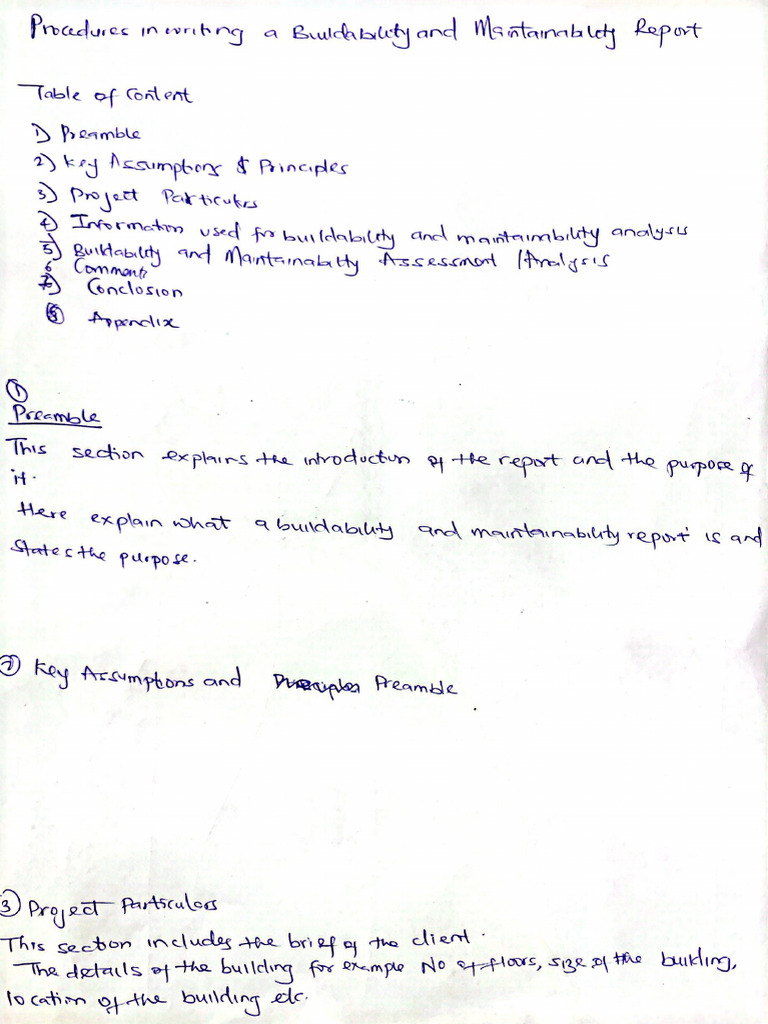 Procedures in writing a Buildability and Maintainability Report
Table of Content
1) Preamble
2) Key Assumptions & Principles
3) Project Particulars
4) Information used for buildability and maintainability analysis
5) Buildability and Maintainability Assessment /Analysis
6 Comments
7) Conclusion
8 Appendix
1
Preamble
This section explains the introduction of the report and the purpose of
it.
Here explain what a buildability and maintainability report is and
states the purpose.
2 Key Assumptions and Preamble
3 Project Particulars
This section includes the brief of the client.
The details of the building for example No of floors, size of the building,
location of the building etc.